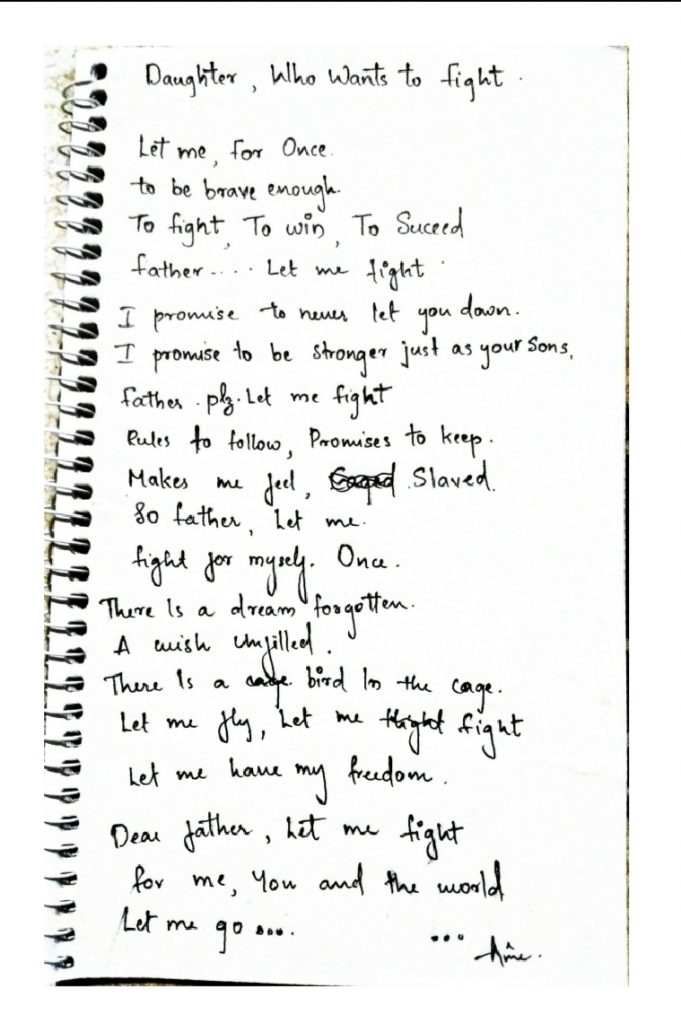 Daughter, Who Wants to fight.
Let me, for Once.
to be brave enough.
To fight, To win, To Suceed
father.... Let me fight.
I promise to never let you down.
I promise to be stronger just as your Sons.
father. plz. Let me fight
Rules to follow, Promises to keep.
Makes me feel, Slaved.
So father, Let me.
fight for myself. Once.
There Is a dream forgotten.
A wish Unfilled.
There Is a bird In the cage.
Let me fly, Let me fight
Let me have my freedom.
Dear father, Let me fight
for me, You and the world
Let me go....
...